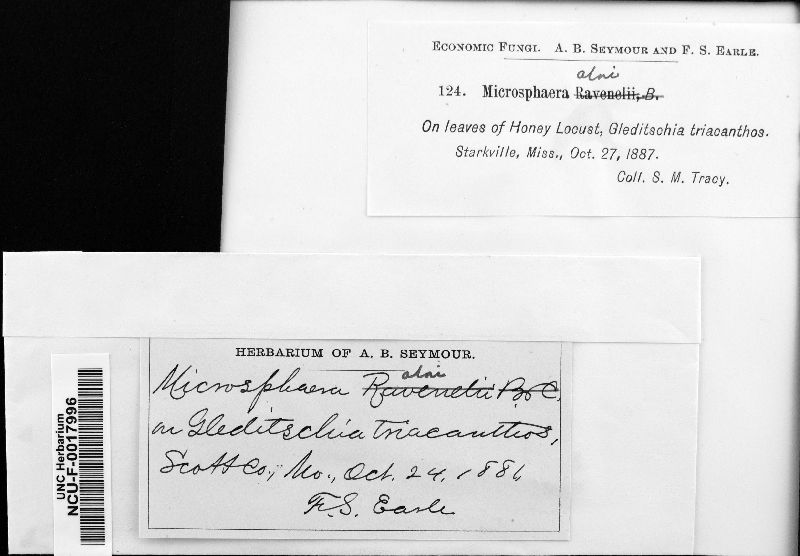 ECONOMIC FUNGI. A. B. SEYMOUR AND F. S. EARLE.
alni
124. Microsphaera Ravenelii, B.
On leaves of Honey Locust, Gleditschia triacanthos.
Starkville, Miss., Oct. 27, 1887.
Coll. S. M. Tracy.
HERBARIUM OF A. B. SEYMOUR.
alni
Microsphaera Ravenelii B & C.
on Gleditschia triacanthos,
Scott Co., Mo., Oct. 24, 1886
F. S. Earle
UNC Herbarium
NCU-F-0017996